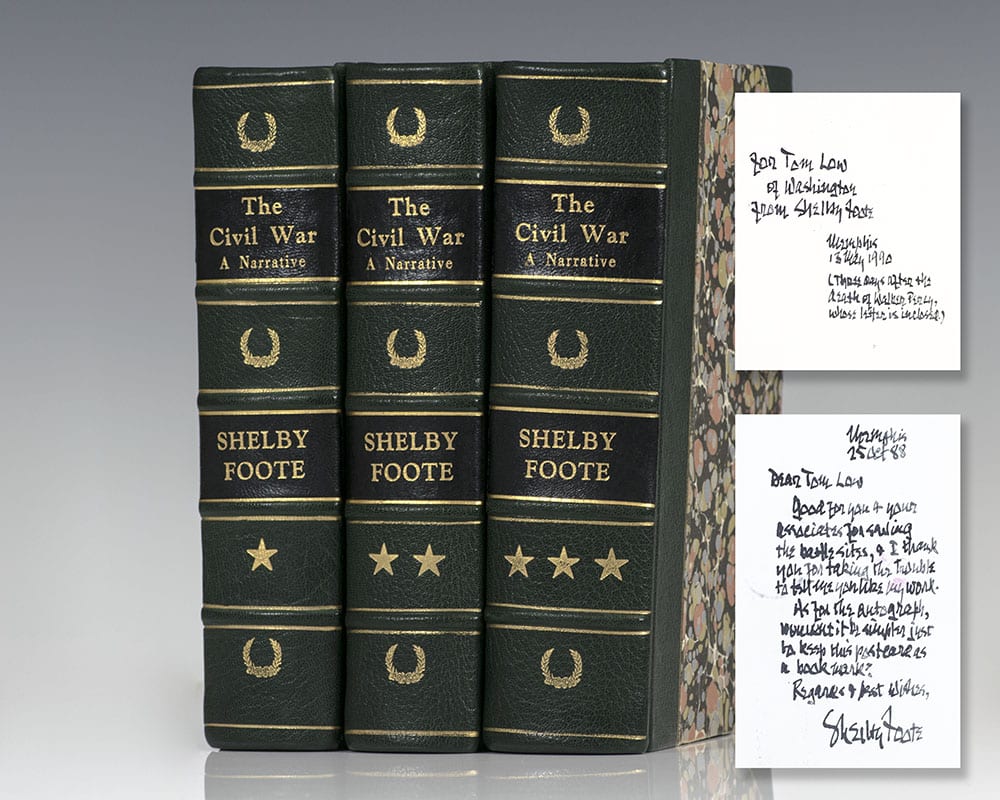 The
Civil War
A Narrative
SHELBY
FOOTE
The
Civil War
A Narrative
SHELBY
FOOTE
The
Civil War
A Narrative
SHELBY
FOOTE
for Tom Law
of Washington
from Shelby Foote
Memphis
13 May 1990
(Three days after the
death of Walker Percy,
whose letter is inclosed)
Memphis
25 Oct 88
Dear Tom Law
Good for you & your
associates for saving
the battle sites, & I thank
you for taking the trouble
to tell me you like my work.
As for the autograph,
wouldnt it be simpler just
to keep this postcard as
a bookmark?
Regards & best wishes,
Shelby Foote